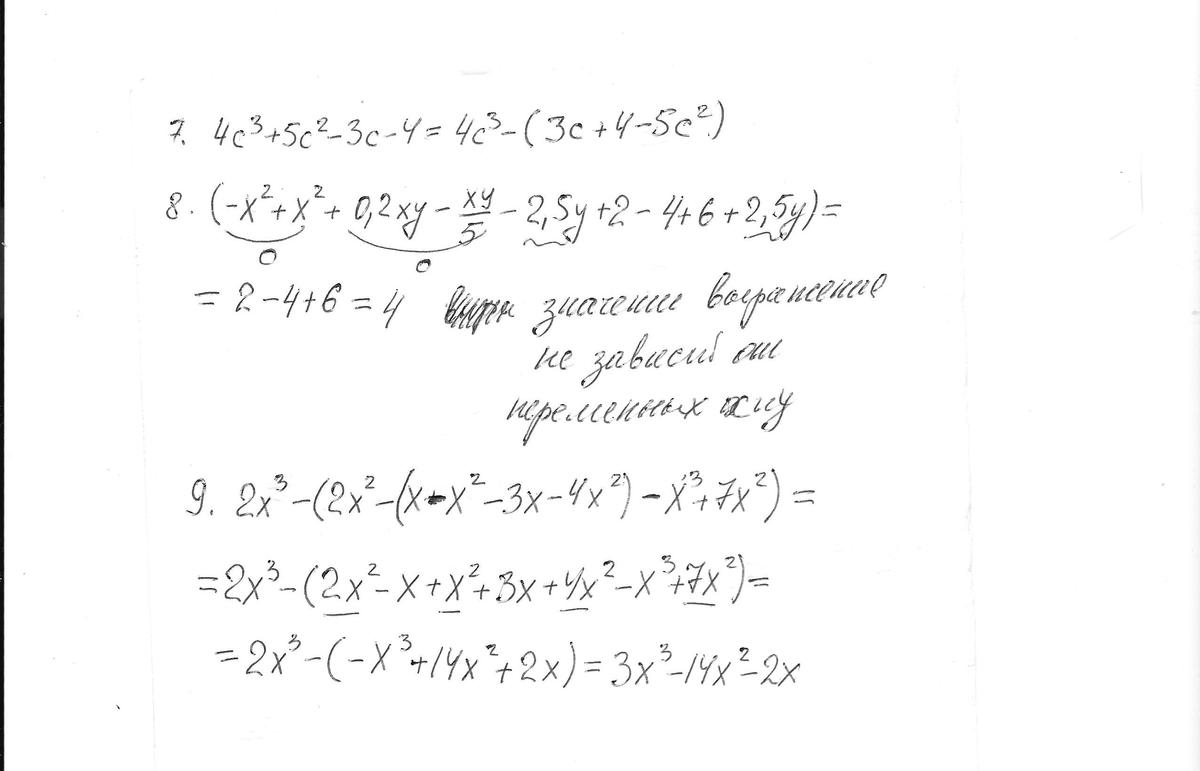 7. 4c³+5c²-3c-4 = 4c³-(3c+4-5c²)
8. (-x²+x²+0,2xy-xy/5-2,5y+2-4+6+2,5y)=
0 0
= 2-4+6 = 4 значение выражение
не зависит от
переменных x и y
9. 2x³-(2x²-(x-x²-3x-4x²)-x³+7x²) =
=2x³-(2x²-x+x²+3x+4x²-x³+7x²)=
=2x³-(-x³+14x²+2x)=3x³-14x²-2x